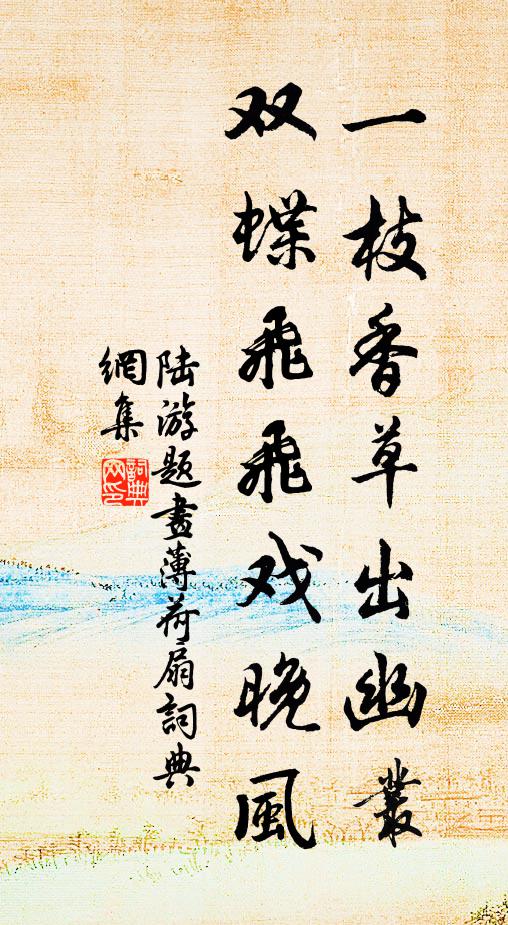 一枝香草出幽叢
双蝶飛飛戏晚風
陆游题畫薄荷扇詞典
網集
詞典
网印